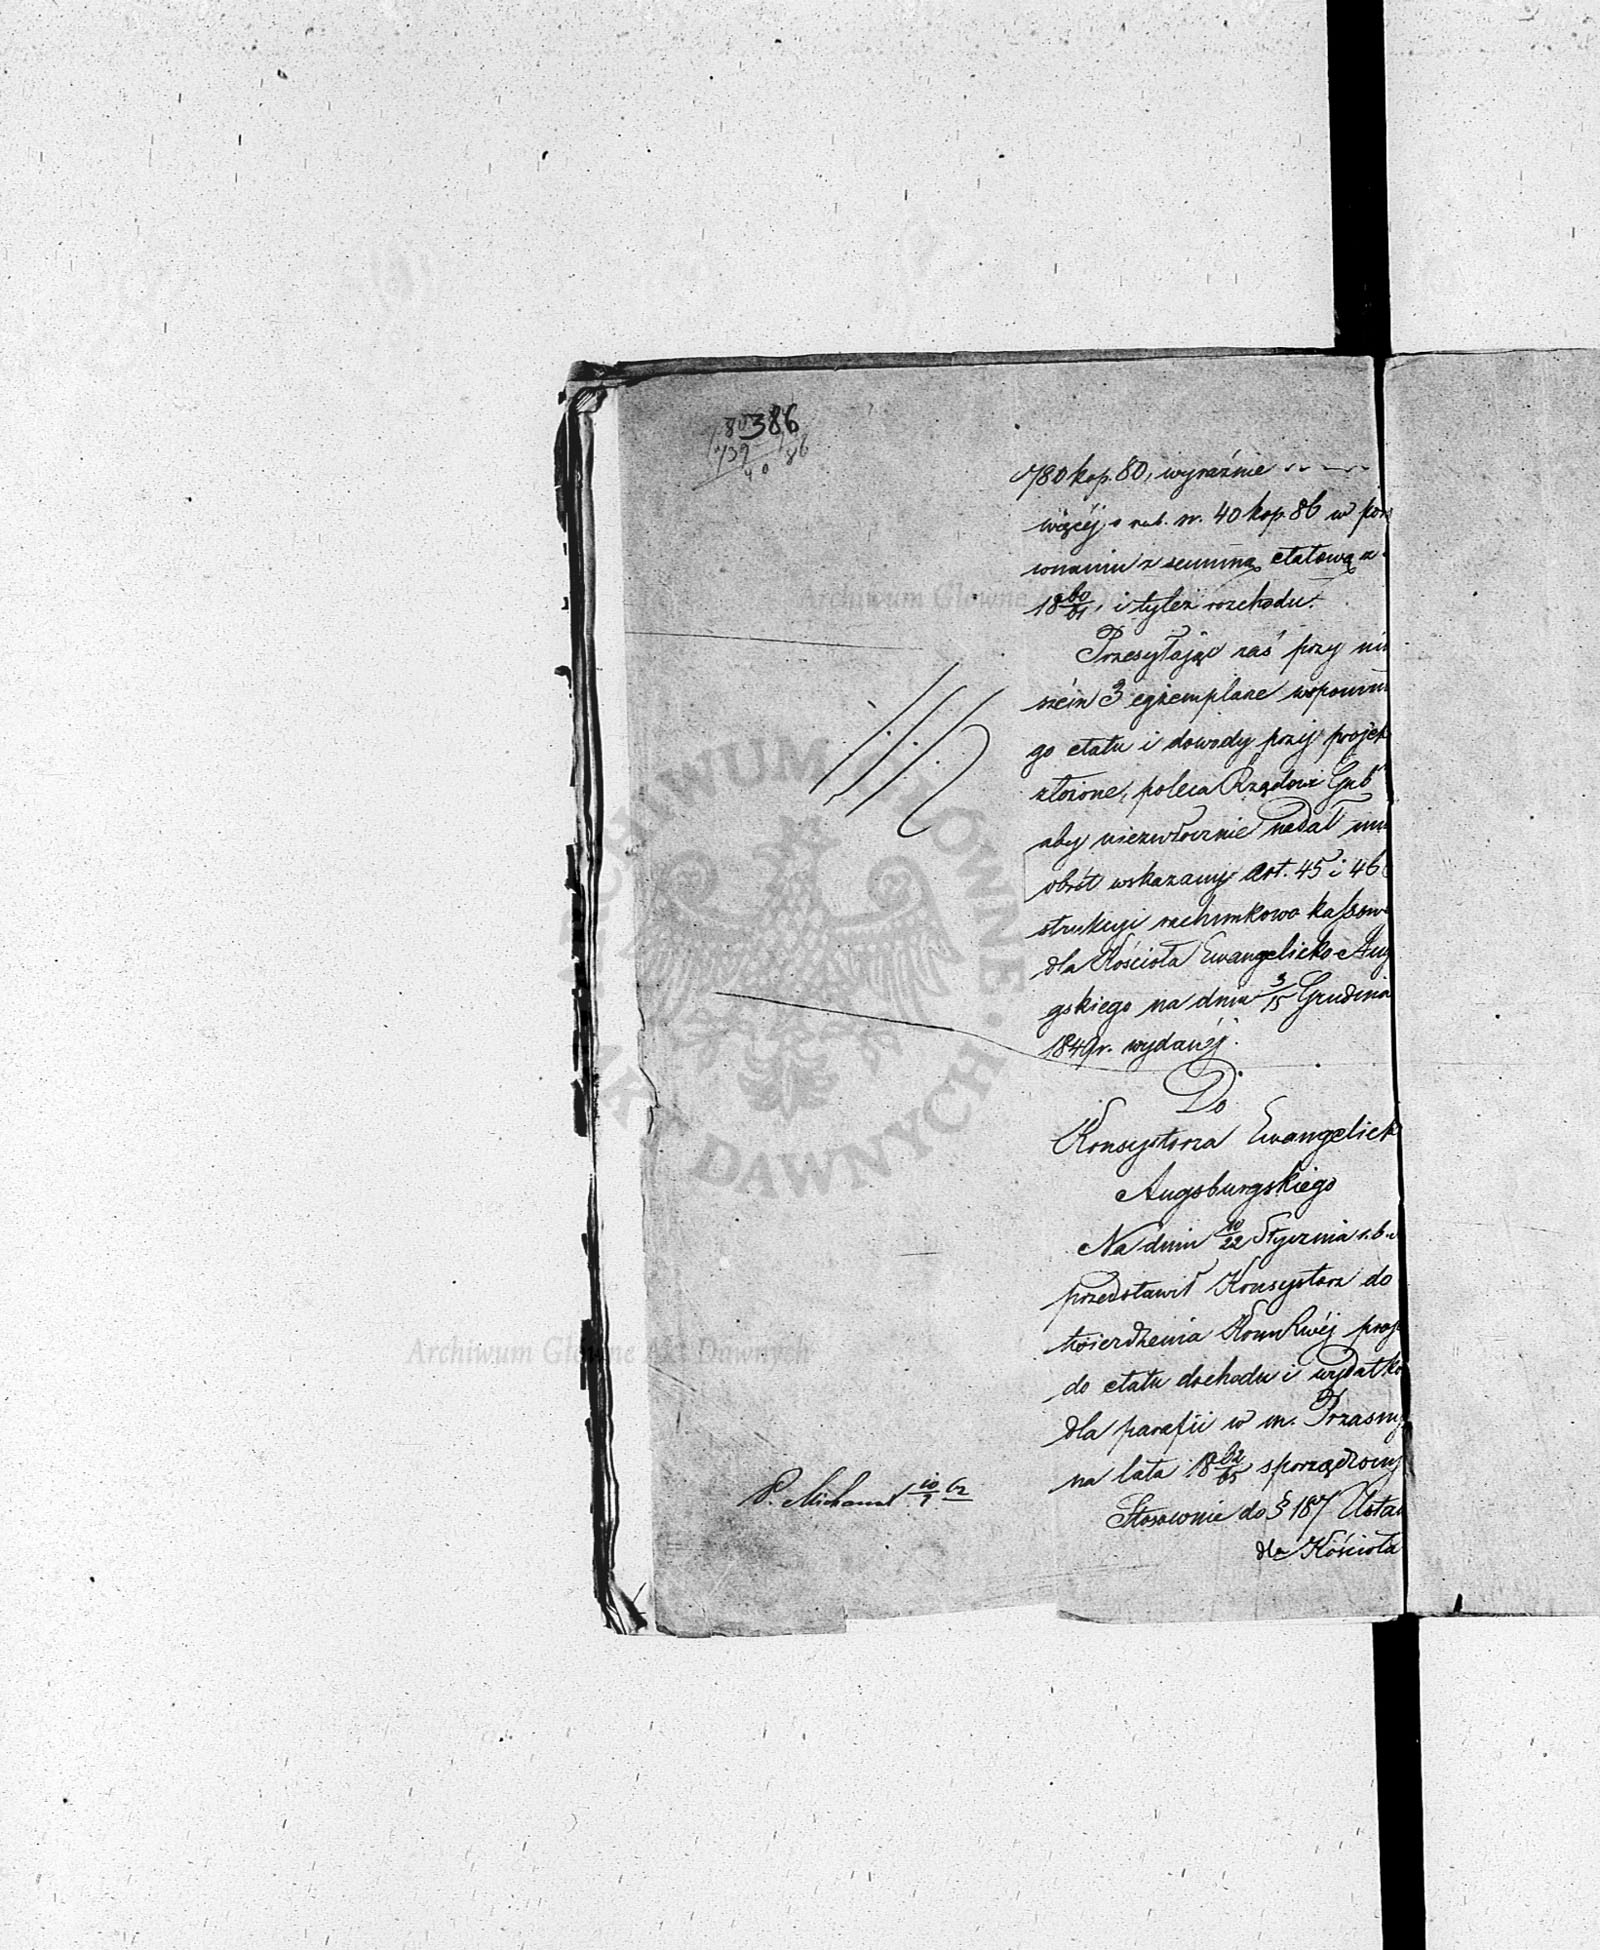 386
780 kop. 80, wyraźnie
więcéj o rub. sr. 40 kop. 86 w poró
wnaniu z summą etatową z
18 60/61, i tyleż rozchodu.
Przesyłając zaś przy ni
szém 3 egzemplarze wspomni
go etatu i dowody przy projek
złożone, poleca Rządowi Gub
aby niezwłocznie nadał im
obrót wskazany Art. 45 i 46
strukcyi rachunkowo kassow
dla Kościoła Ewangelicko-Aug
gskiego na dniu 3/15 Grudnia
1849 r. wydanéj.
Do
Konsystorza Ewangelick
Augsburgskiego
Na dniu 10/22 Stycznia r. b.
przedstawił Konsystorz do
twierdzenia Kom Rwéj proje
do etatu dochodu i wydatkó
dla parafii w m. Przasny
na lata 18 62/65 sporządzony
P. 10/7 62
Stosownie do § 187 Ustaw
dla Kościoła
ARCHIWUM GŁÓWNE AKT DAWNYCH
Archiwum Główne Akt Dawnych
Archiwum Główne Akt Dawnych